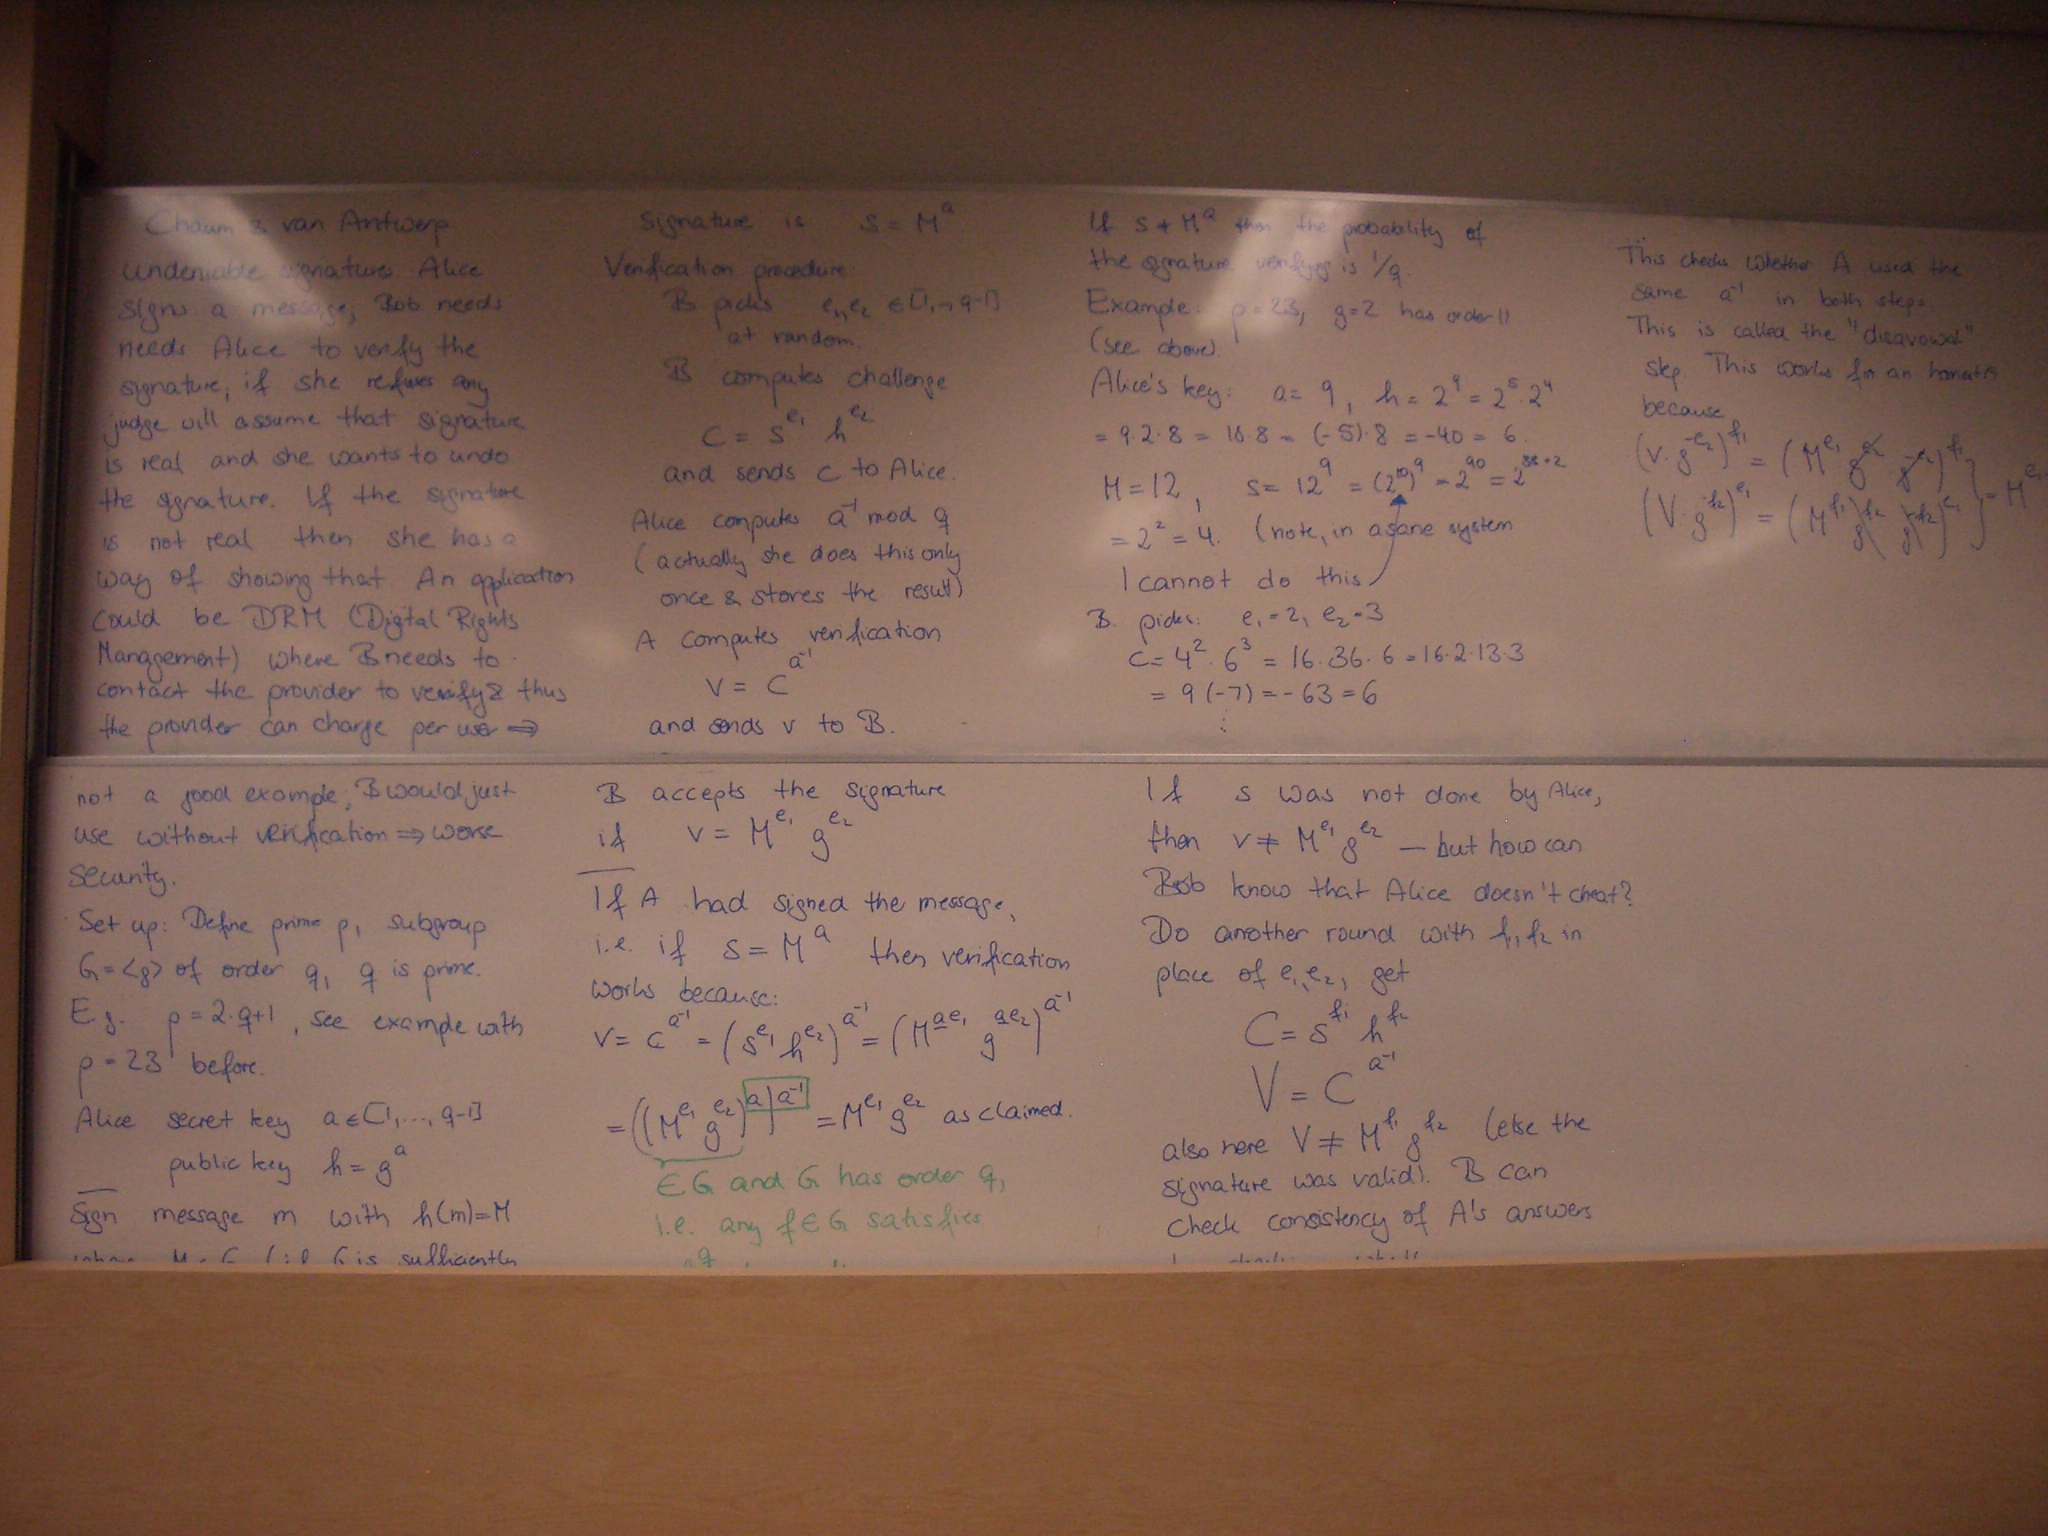 Chaum & van Antwerp
undeniable signatures Alice
signs a message; Bob needs
needs Alice to verify the
signature; if she refuses any
judge will assume that signature
is real and she wants to undo
the signature. If the signature
is not real then she has a
way of showing that. An application
could be DRM (Digital Rights
Management) where B needs to
contact the provider to verify & thus
the provider can charge per user ⇒
not a good example; B would just
use without verification ⇒ worse
security.
Set up: Define prime p, subgroup
G=<g> of order q, q is prime.
E.g. p = 2·q+1, see example with
p=23 before.
Alice secret key a∈[1,…,q-1]
public key h = g^a
Sign message m with h(m)=M
G is sufficiently
Signature is s = M^a
Verification procedure
B picks e₁,e₂ ∈[1,..,q-1]
at random.
B computes challenge
c = s^e₁ h^e₂
and sends c to Alice.
Alice computes a^-1 mod q
(actually she does this only
once & stores the result)
A computes verification
v = c^a^-1
and sends v to B.
B accepts the signature
if v = M^e₁ g^e₂
If A had signed the message,
i.e. if s = M^a then verification
works because:
v = c^a^-1 = (s^e₁ h^e₂)^a^-1 = (M^ae₁ g^ae₂)^a^-1
= ((M^e₁ g^e₂)^a)^a^-1 = M^e₁ g^e₂ as claimed.
∈G and G has order q,
i.e. any f∈G satisfies
If s ≠ M^a then the probability of
the signature verifying is 1/q.
Example: p=23, g=2 has order 11
(see above)
Alice's key: a= 9, h= 2^9 = 2^5·2^4
= 9·2·8 = 18·8 = (-5)·8 = -40 = 6.
M=12, s= 12^9 = (2^10)^9 = 2^90 = 2^88+2
= 2^2 = 4. (note, in a sane system
I cannot do this
B. picks: e₁=2, e₂=3
c= 4^2·6^3 = 16·36·6 = 16·2·13·3
= 9(-7) = -63 = 6
⋮
If s was not done by Alice,
then v ≠ M^e₁ g^e₂ — but how can
Bob know that Alice doesn't cheat?
Do another round with f₁,f₂ in
place of e₁,e₂, get
C = s^f₁ h^f₂
V = C^a^-1
also here V ≠ M^f₁ g^f₂ (else the
signature was valid). B can
check consistency of A's answers
This checks whether A used the
same a^-1 in both steps.
This is called the "disavowal"
step. This works for an honest A
because
(v·g^-e₂)^f₁ = (M^e₁ g^e₂ g^-e₂)^f₁
(V·g^-f₂)^e₁ = (M^f₁ g^f₂ g^-f₂)^e₁ } = M^e₁